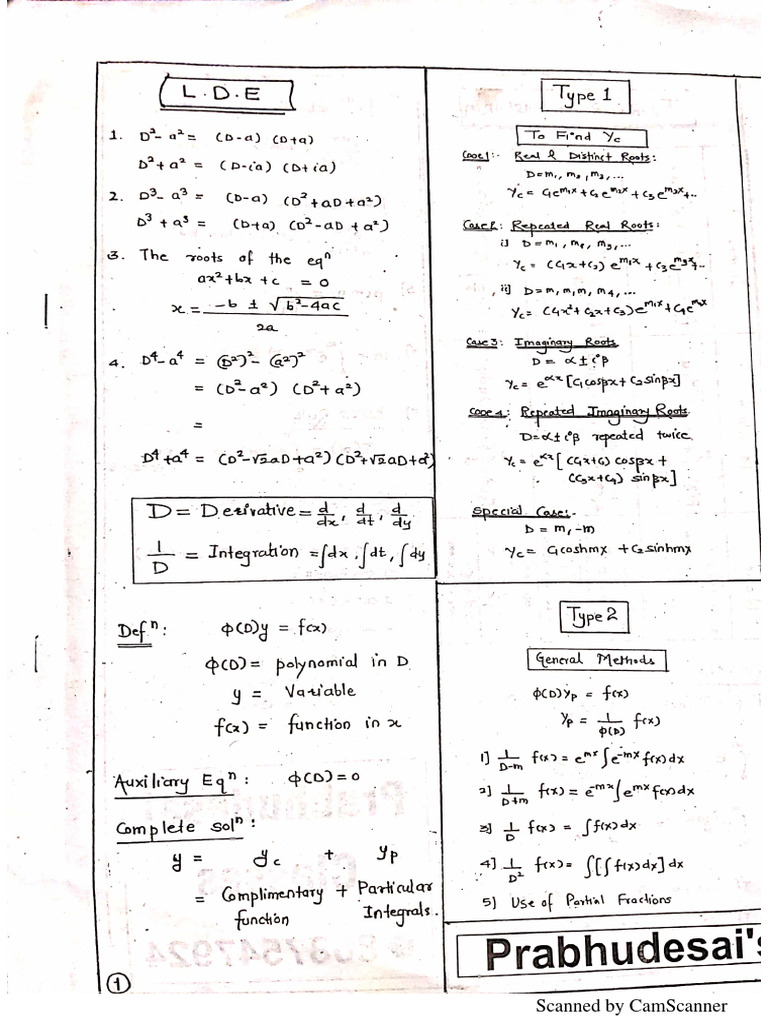 L.D.E
1. D²- a² = (D-a) (D+a)
D²+ a² = (D-ia) (D+ia)
2. D³- a³ = (D-a) (D²+aD+a²)
D³ + a³ = (D+a) (D²-aD + a²)
3. The roots of the eqⁿ
ax²+bx+c = 0
x = (-b ± √(b²-4ac)) / 2a
4. D⁴-a⁴ = (D²)²- (a²)²
= (D²-a²) (D²+a²)
=
D⁴+a⁴ = (D²-√2aD+a²)(D²+√2aD+a²)
D = Derivative = d/dx, d/dt, d/dy
1/D = Integration = ∫dx, ∫dt, ∫dy
Defⁿ: φ(D)y = f(x)
φ(D) = polynomial in D
y = Variable
f(x) = function in x
Auxiliary Eqⁿ: φ(D)=0
Complete solⁿ:
y = yc + yp
= Complimentary + Particular
function Integrals.
1
Type 1
To Find Yc
Case1:- Real & Distinct Roots:
D=m₁, m₂, m₃,...
Yc = C₁e^m₁x + C₂e^m₂x + C₃e^m₃x+..
Case2: Repeated Real Roots:
i] D = m₁, m₁, m₃,...
Yc = (C₁x+C₂) e^m₁x + C₃e^m₃x+..
ii] D = m₁, m₁, m₁, m₄,...
Yc = (C₁x²+C₂x+C₃)e^m₁x + C₄e^m₄x
Case3: Imaginary Roots
D = α ± iβ
Yc = e^αx [C₁cosβx + C₂sinβx]
Case4: Repeated Imaginary Roots
D=α±iβ repeated twice
Yc = e^αx [(C₁x+C₂) cosβx +
(C₃x+C₄) sinβx]
Special Case:-
D = m, -m
Yc = C₁coshmx + C₂sinhmx
Type 2
General Methods
φ(D)Yp = f(x)
Yp = 1/φ(D) f(x)
1] 1/(D-m) f(x) = e^mx ∫e^-mx f(x)dx
2] 1/(D+m) f(x) = e^-mx ∫e^mx f(x)dx
3] 1/D f(x) = ∫f(x)dx
4] 1/D² f(x) = ∫[∫f(x)dx]dx
5) Use of Partial Fractions
Prabhudesai's
Scanned by CamScanner